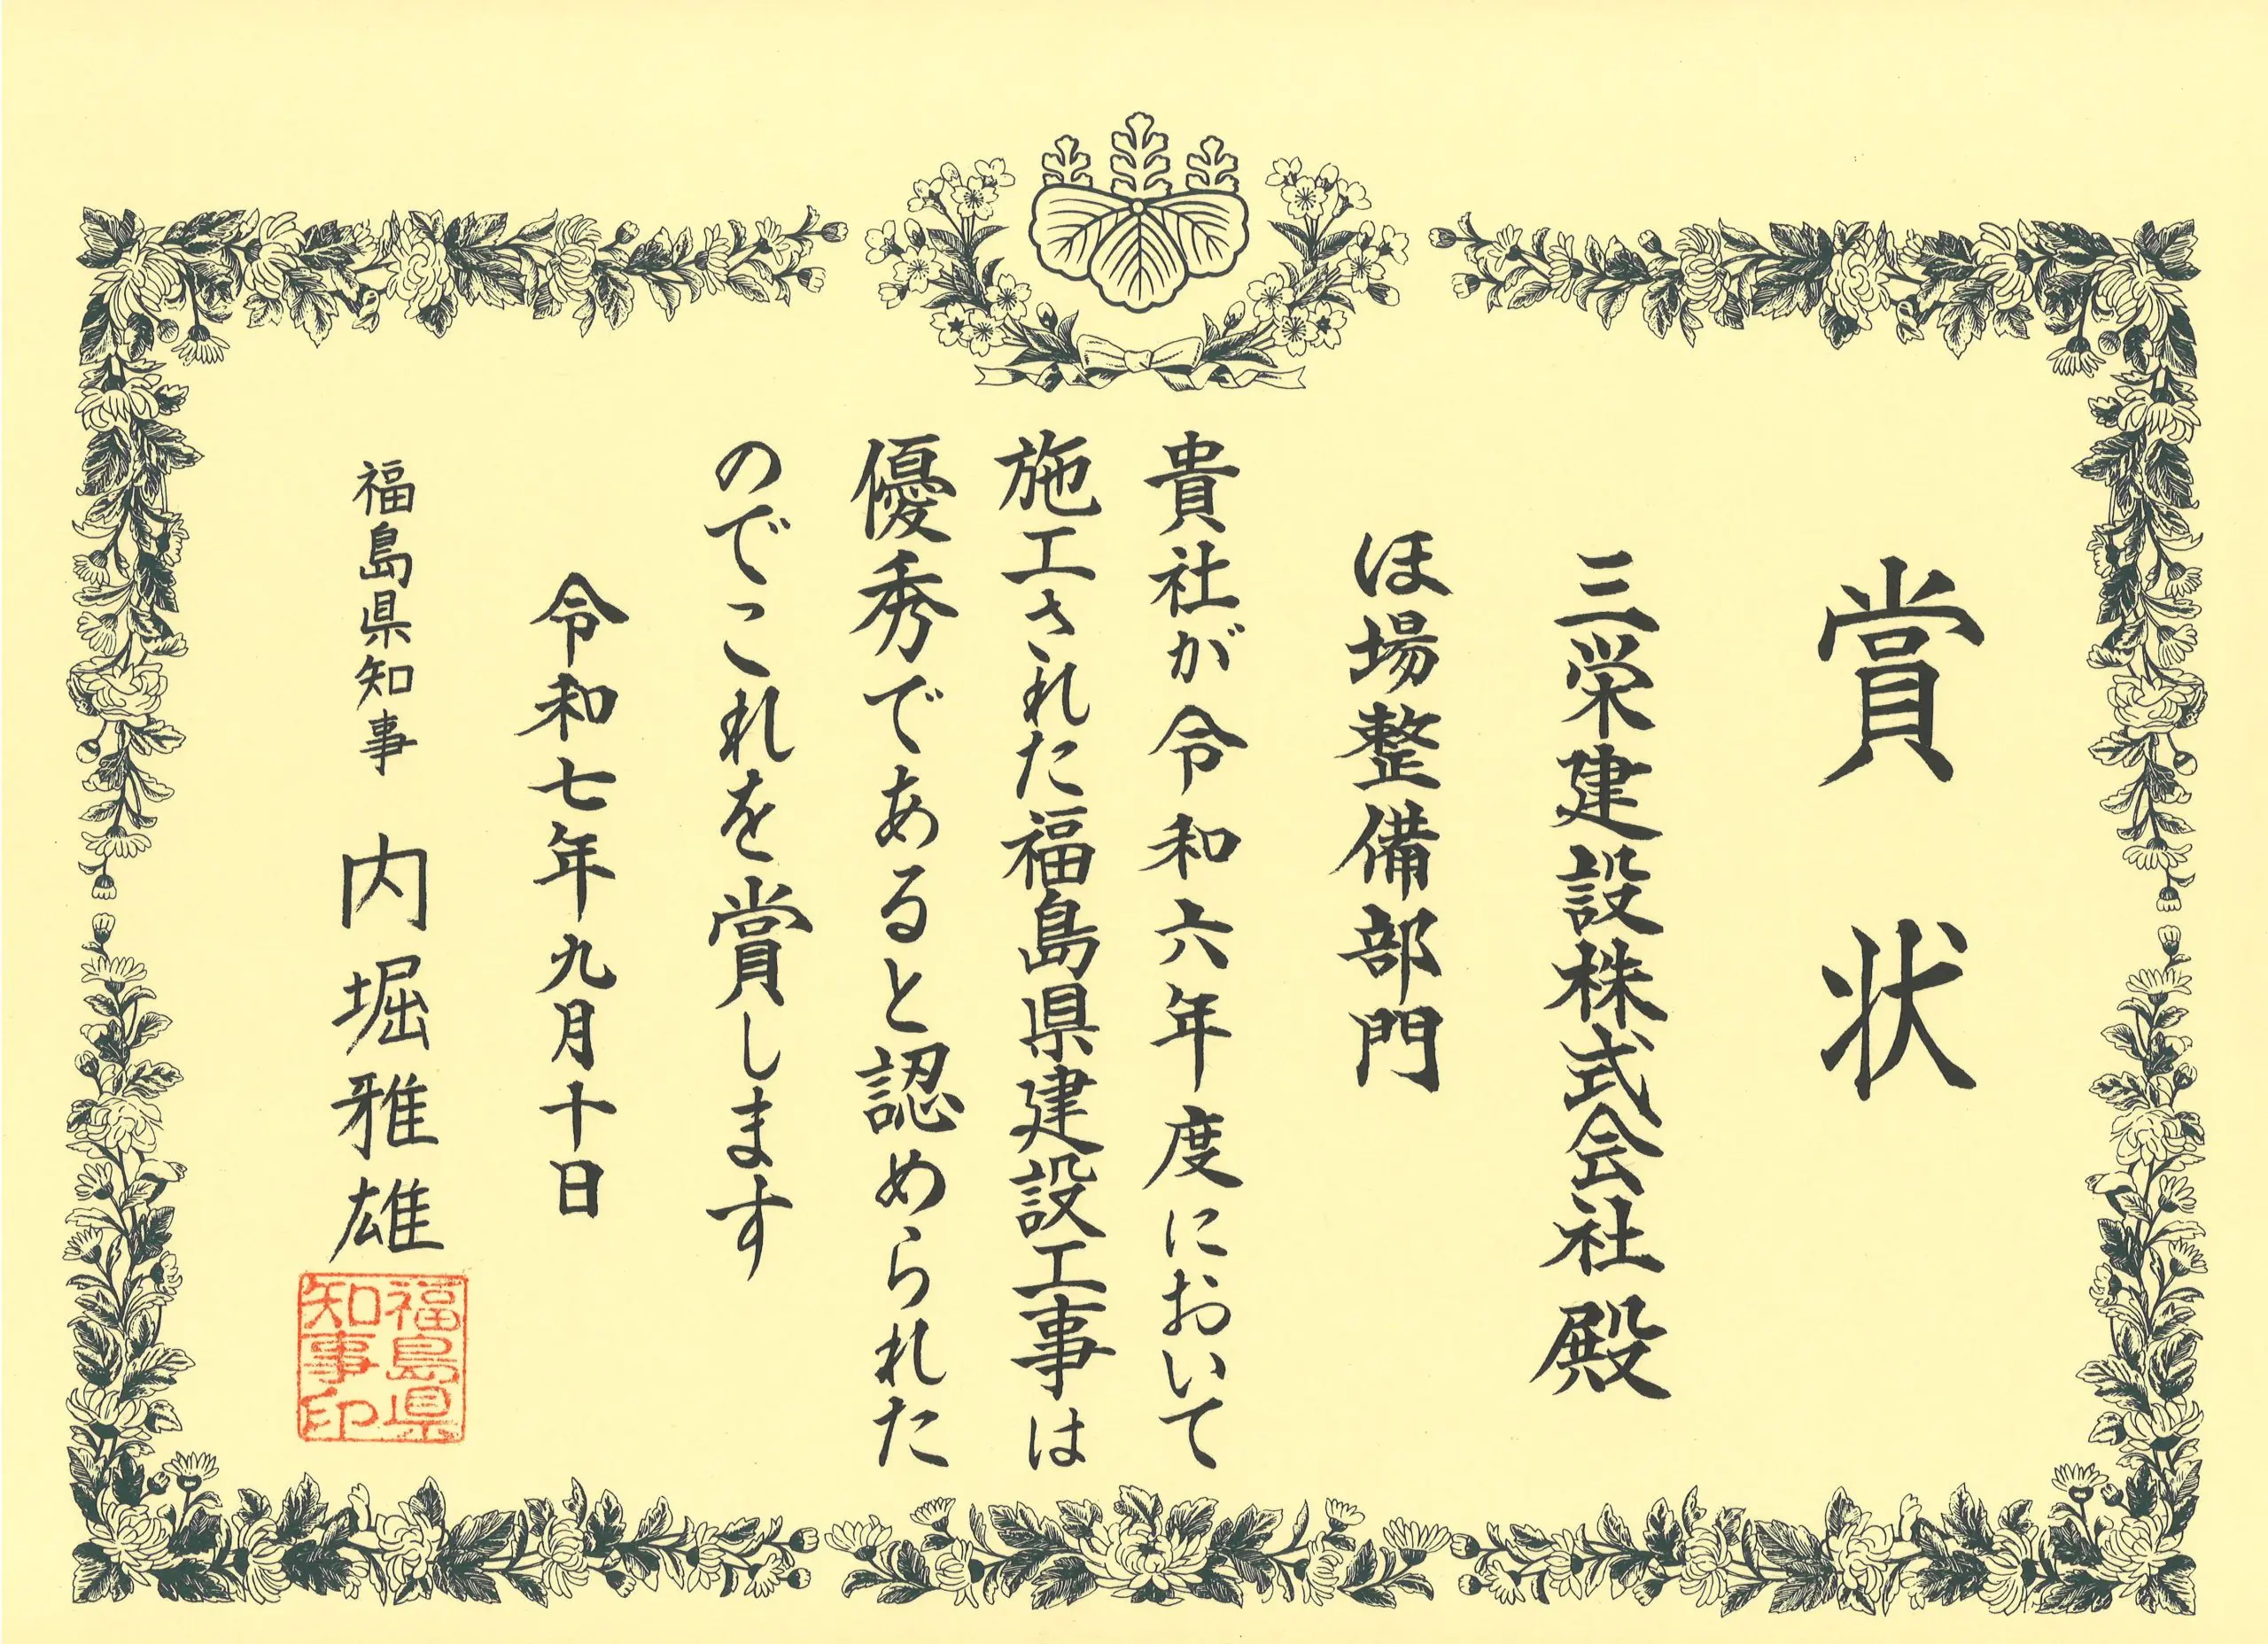 賞状
三栄建設株式会社殿
ほ場整備部門
貴社が令和六年度において
施工された福島県建設工事は
優秀であると認められた
のでこれを賞します
令和七年九月十日
福島県知事 内堀雅雄
福島県
知事印